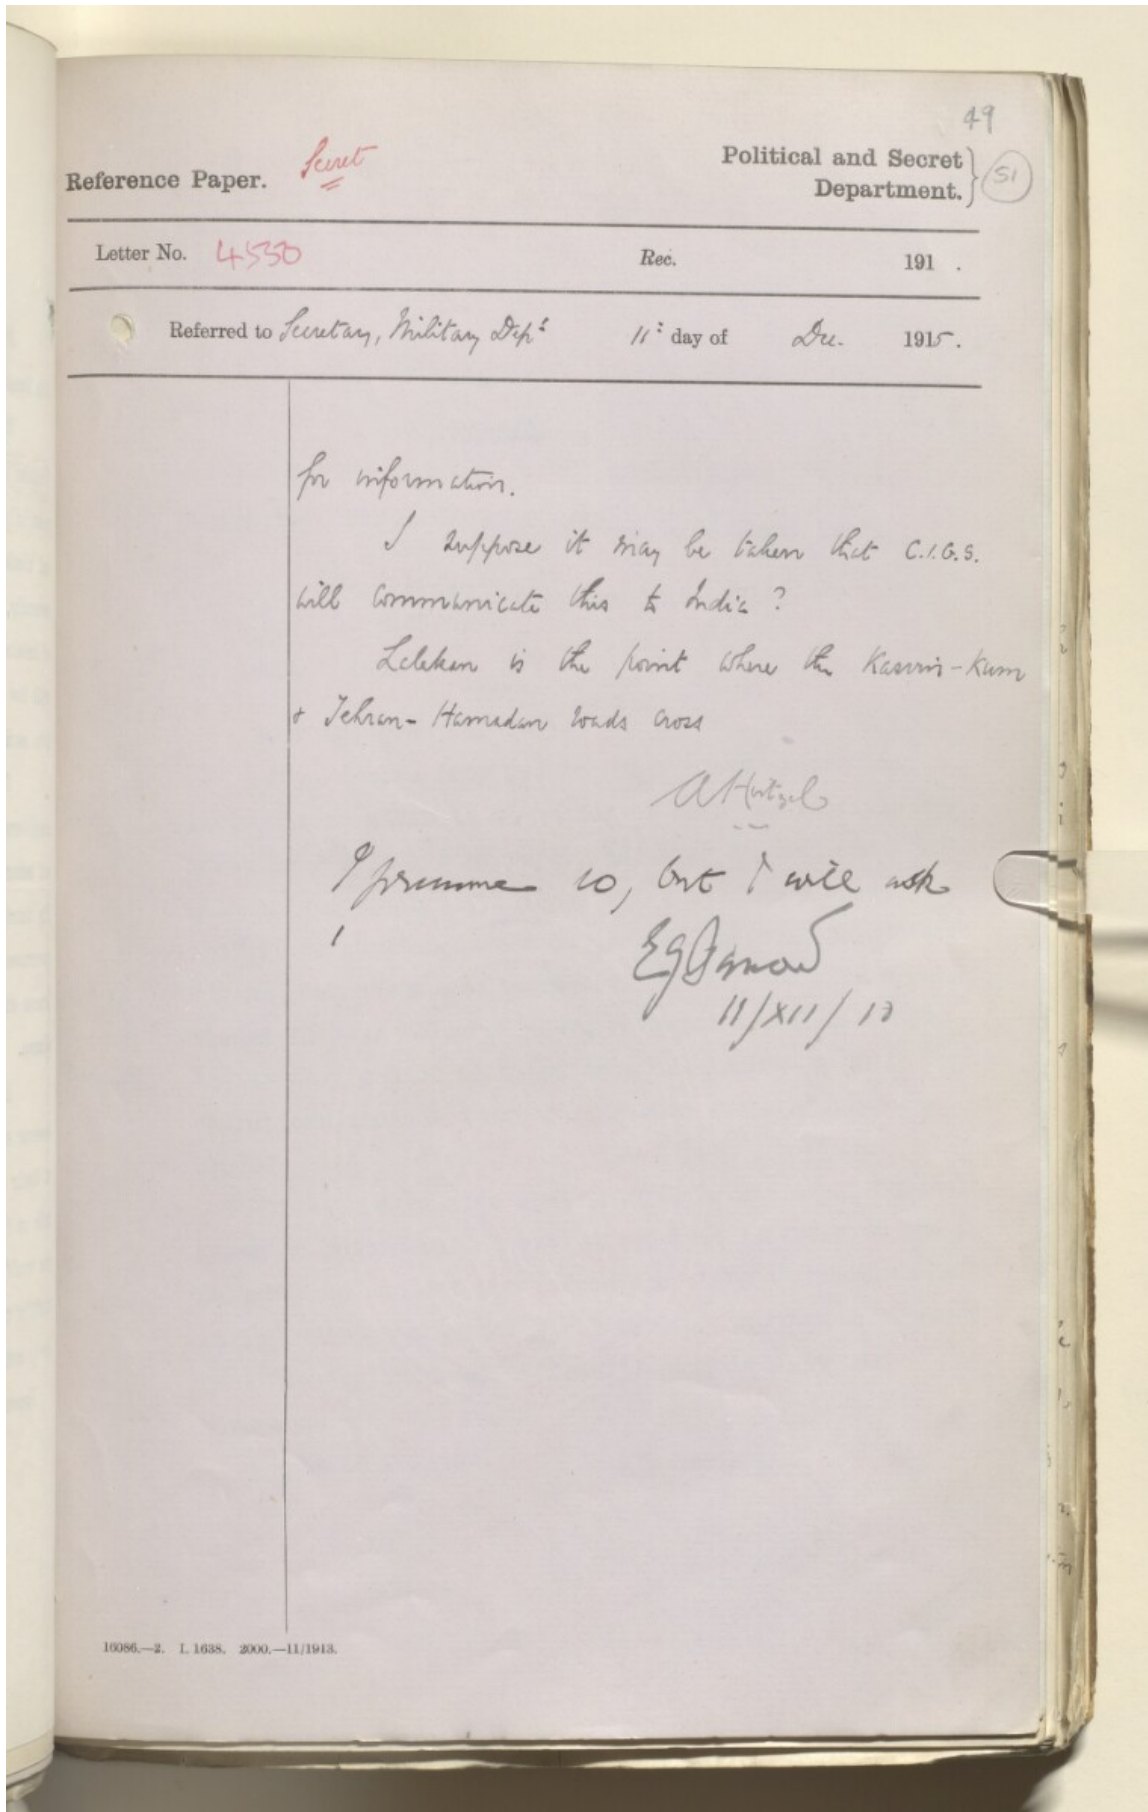 49
Secret
Political and Secret
Department.
51
Reference Paper.
Letter No. 4550 Rec. 191 .
Referred to Secretary, Military Dept 11th day of Dec. 1915.
for information.
I suppose it may be taken that C.I.G.S.
will communicate this to India?
Lalakan is the point where the Kasvin-Kum
& Tehran-Hamadan roads cross
A Hirtzel
I presume so, but I will ask
EGBarrow
11/XII/15
16086.—2. I. 1638. 2000.—11/1913.